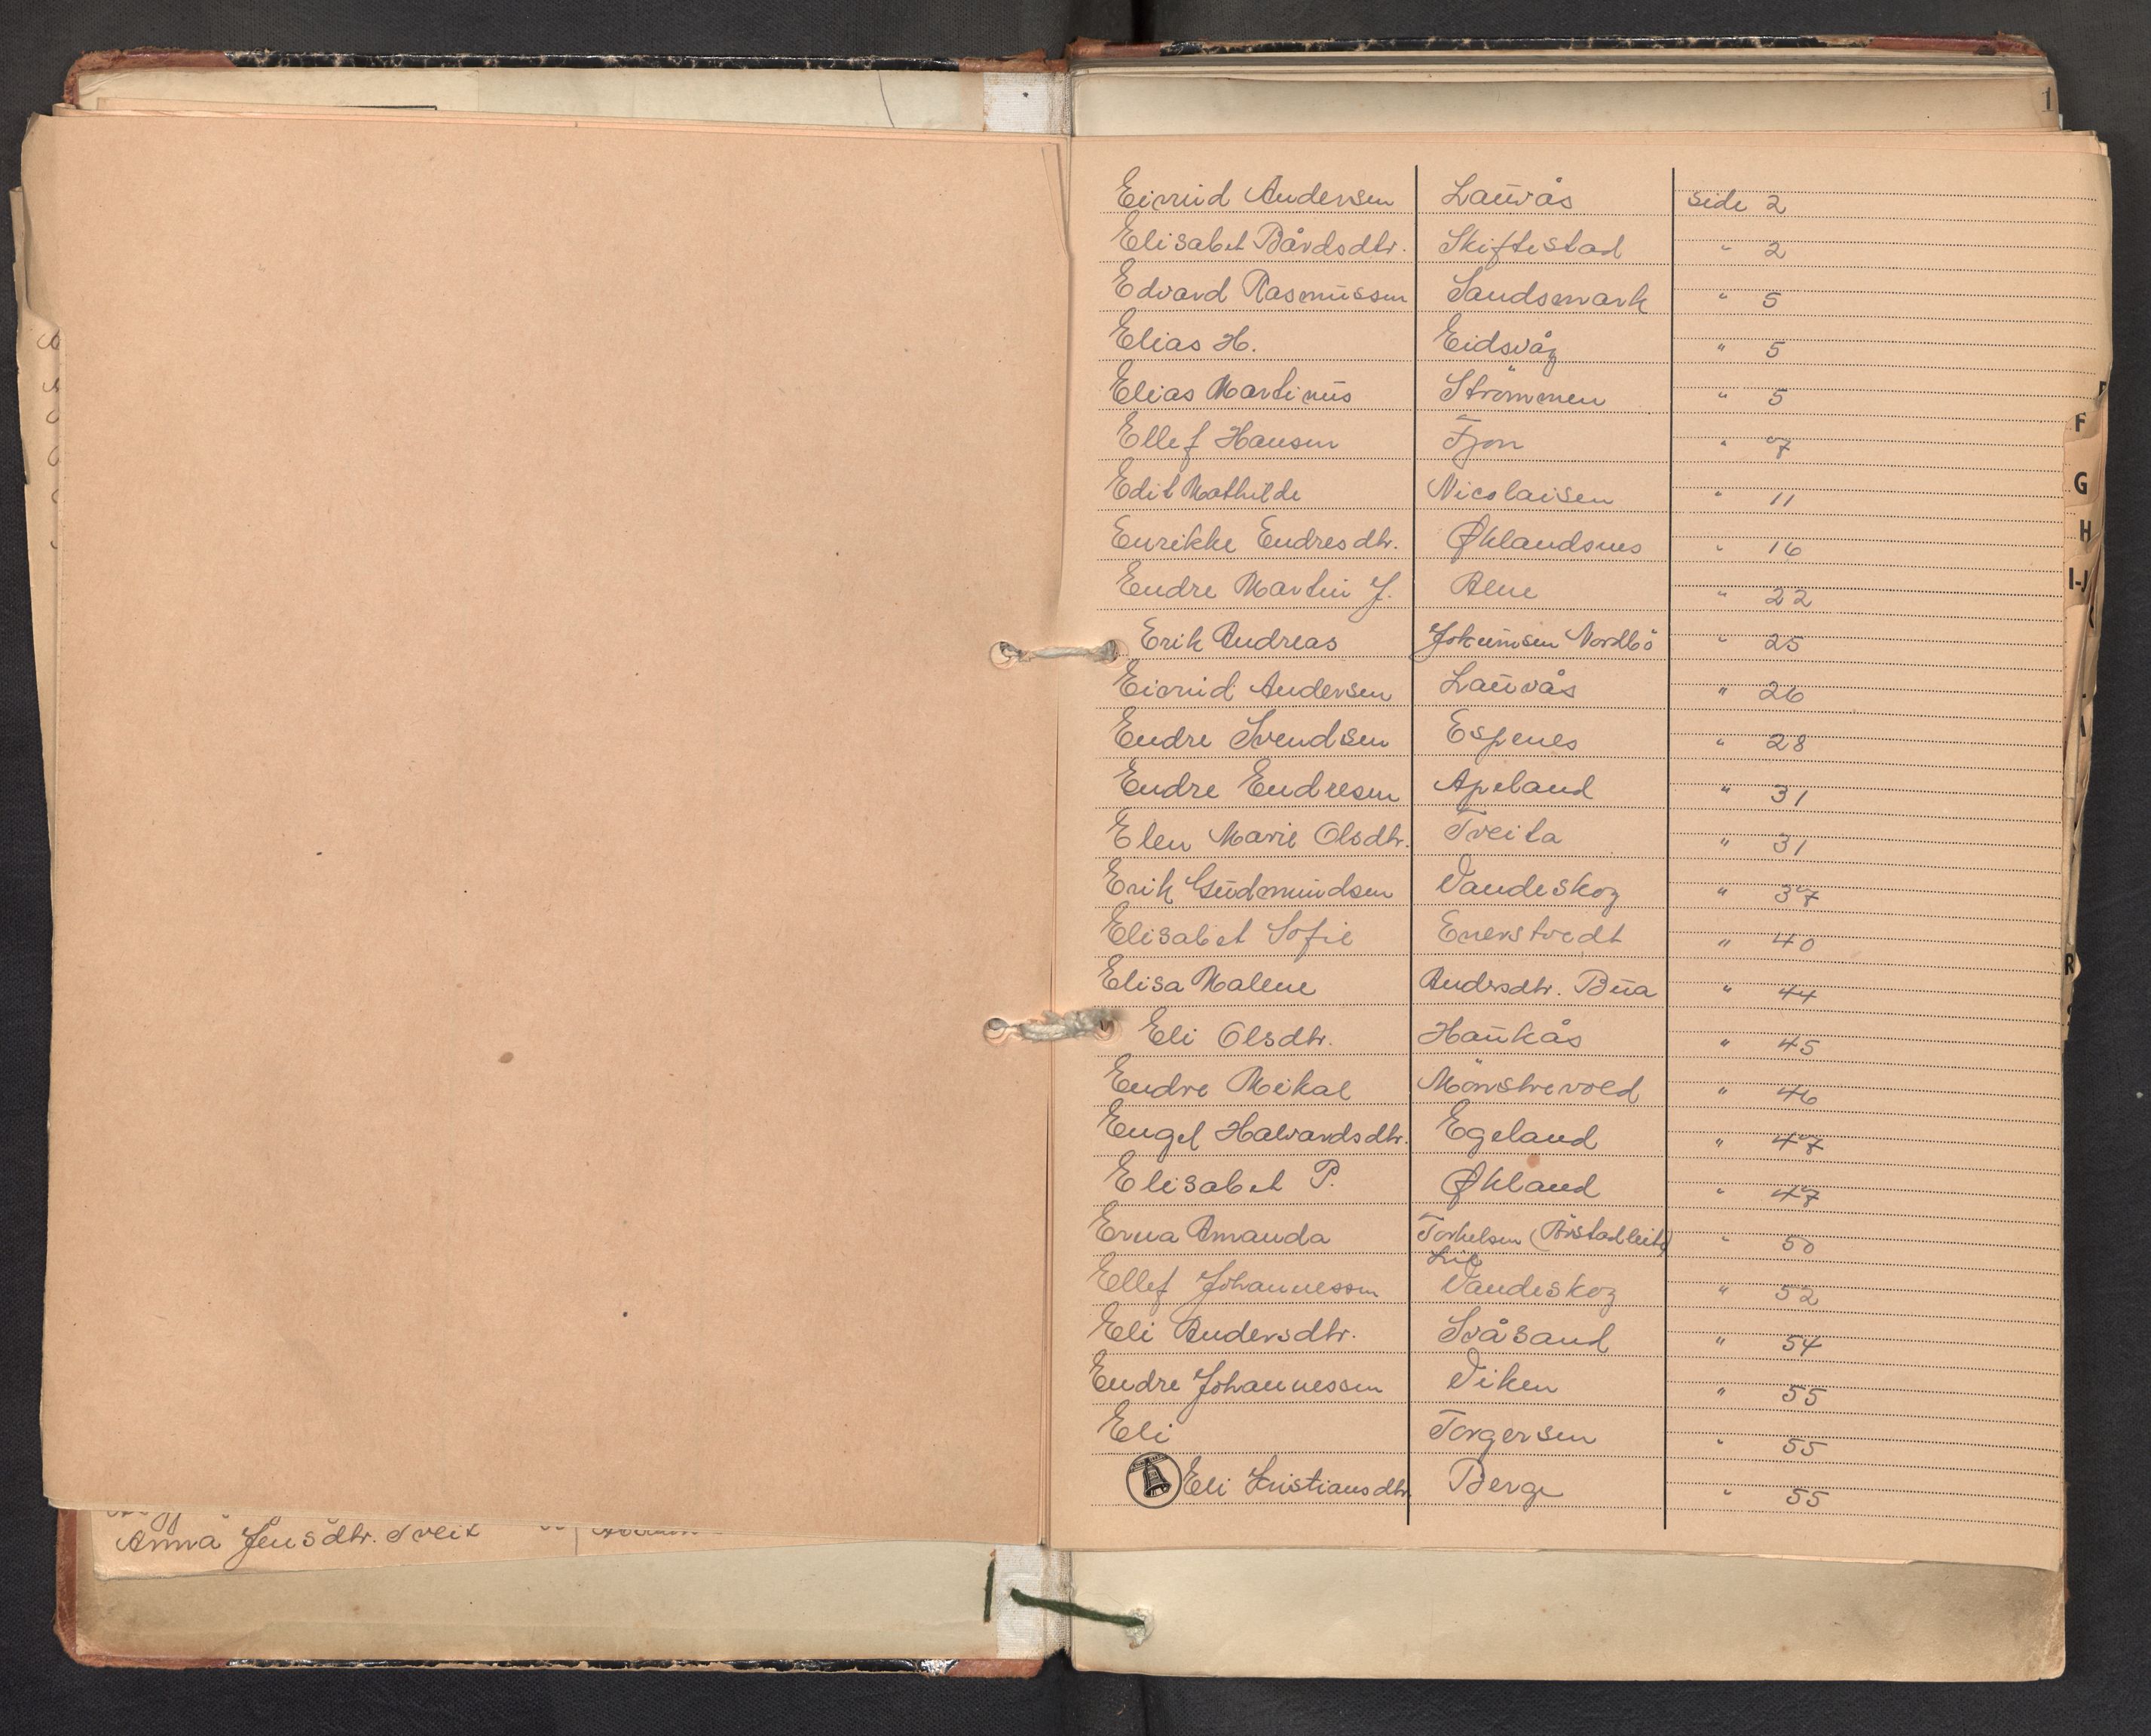 1
Eivind Andersen Lauvås side 2
Elisabet Bårdsdtr. Skiftestad " 2
Edvard Rasmussen Sandsmark " 5
Elias H. Eidsvåg " 5
Elias Martinus Strömmen " 5
Ellef Hansen Fjon " 7
Edit Mathilde Nicolaisen " 11
Enrikke Endresdtr. Øklandsnes " 16
Endre Martin J. Alne " 22
Erik Andreas Jokumsen Nordbö " 25
Eivind Andersen Lauvås " 26
Endre Svendsen Espenes " 28
Endre Endresen Apeland " 31
Elen Marie Olsdtr. Tveita " 31
Erik Gudmundsen Vandeskog " 37
Elisabet Sofie Enerstvedt " 40
Elisa Malene Andersdtr. Bua " 44
Eli Olsdtr. Haukås " 45
Endre Mikal Mönstrevold " 46
Engel Halvardsdtr. Egeland " 47
Elisabet P. Økland " 47
Erna Amanda Torkelsen (Årstadleite) " 50
Lie
Ellef Johannessen Vandeskog " 52
Eli Andersdtr. Svåsand " 54
Endre Johannessen Viken " 55
Eli Torgersen " 55
Eli Kristiansdtr. Berge " 55
F
G
H
I-J
R
Anna Jensdtr. Tveit